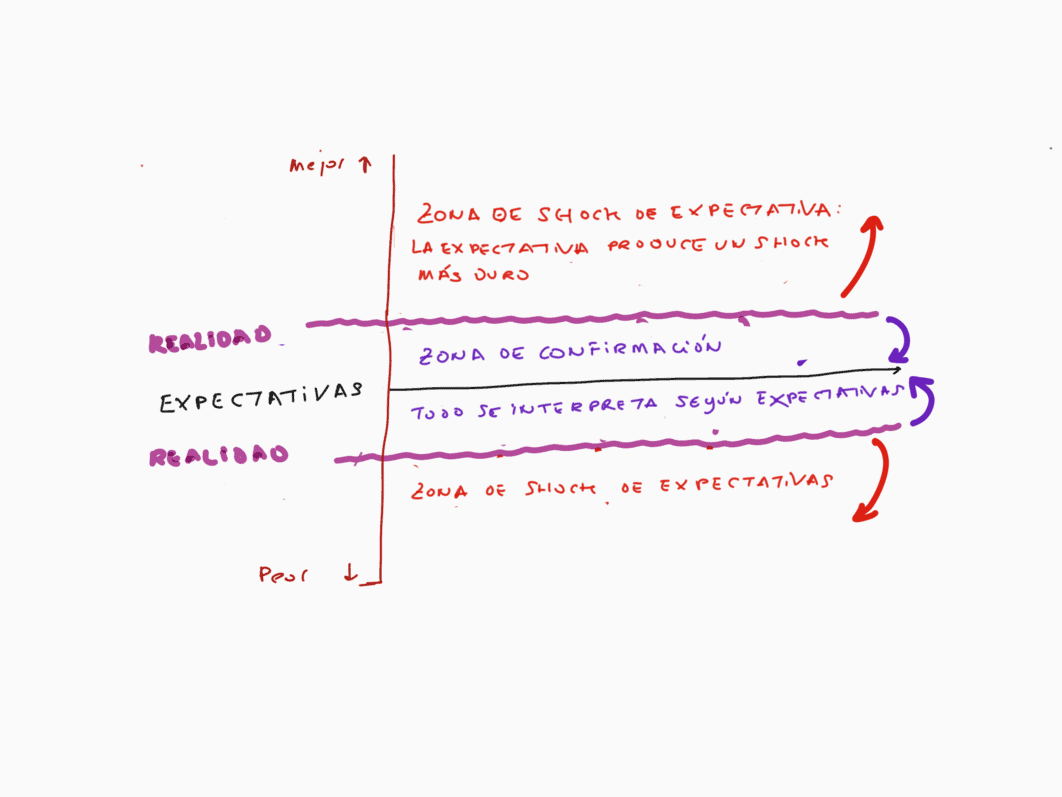 Mejor ↑
ZONA DE SHOCK DE EXPECTATIVA:
LA EXPECTATIVA PRODUCE UN SHOCK
MÁS DURO
REALIDAD
ZONA DE CONFIRMACIÓN
EXPECTATIVAS
TODO SE INTERPRETA SEGÚN EXPECTATIVAS
REALIDAD
ZONA DE SHOCK DE EXPECTATIVAS
Peor ↓